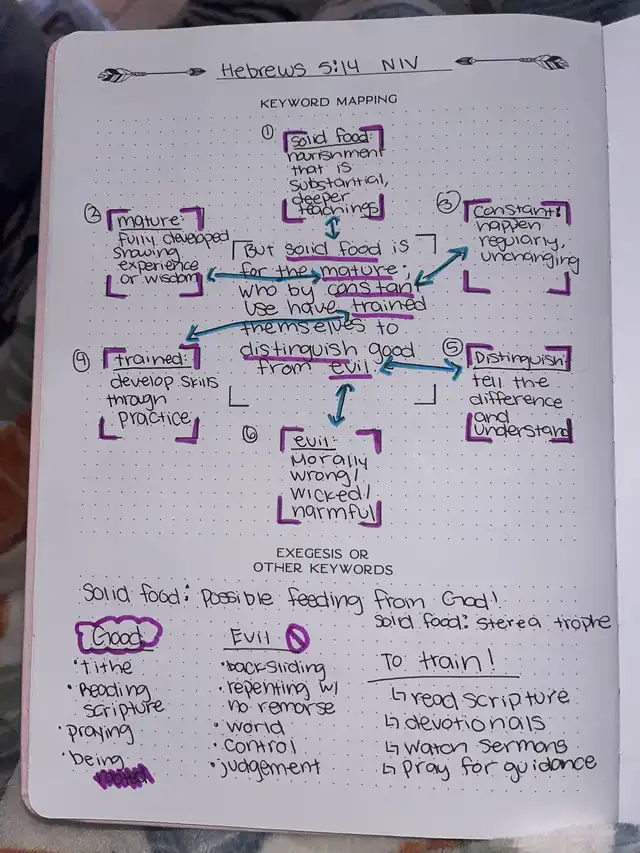 Hebrews 5:14 NIV
KEYWORD MAPPING
①
solid food:
nourishment
that is
substantial,
deeper
teachings
②
mature:
fully developed
showing
experience
or wisdom
③
constant:
happen
regularly,
unchanging
But solid food is
for the mature,
who by constan
use have trained
themselves to
distinguish good
from evil
④
trained:
develop skills
through
practice
⑤
Distinguish:
tell the
difference
and
understand
⑥
evil:
Morally
wrong/
wicked/
harmful
EXEGESIS OR
OTHER KEYWORDS
Solid food: Possible feeding from God!
solid food: Sterea trophe
Good
• tithe
• Reading
scripture
• praying
• being
Evil
• backsliding
• repenting w/
no remorse
• world
• control
• judgement
To train!
↳ read scripture
↳ devotionals
↳ watch sermons
↳ pray for guidance